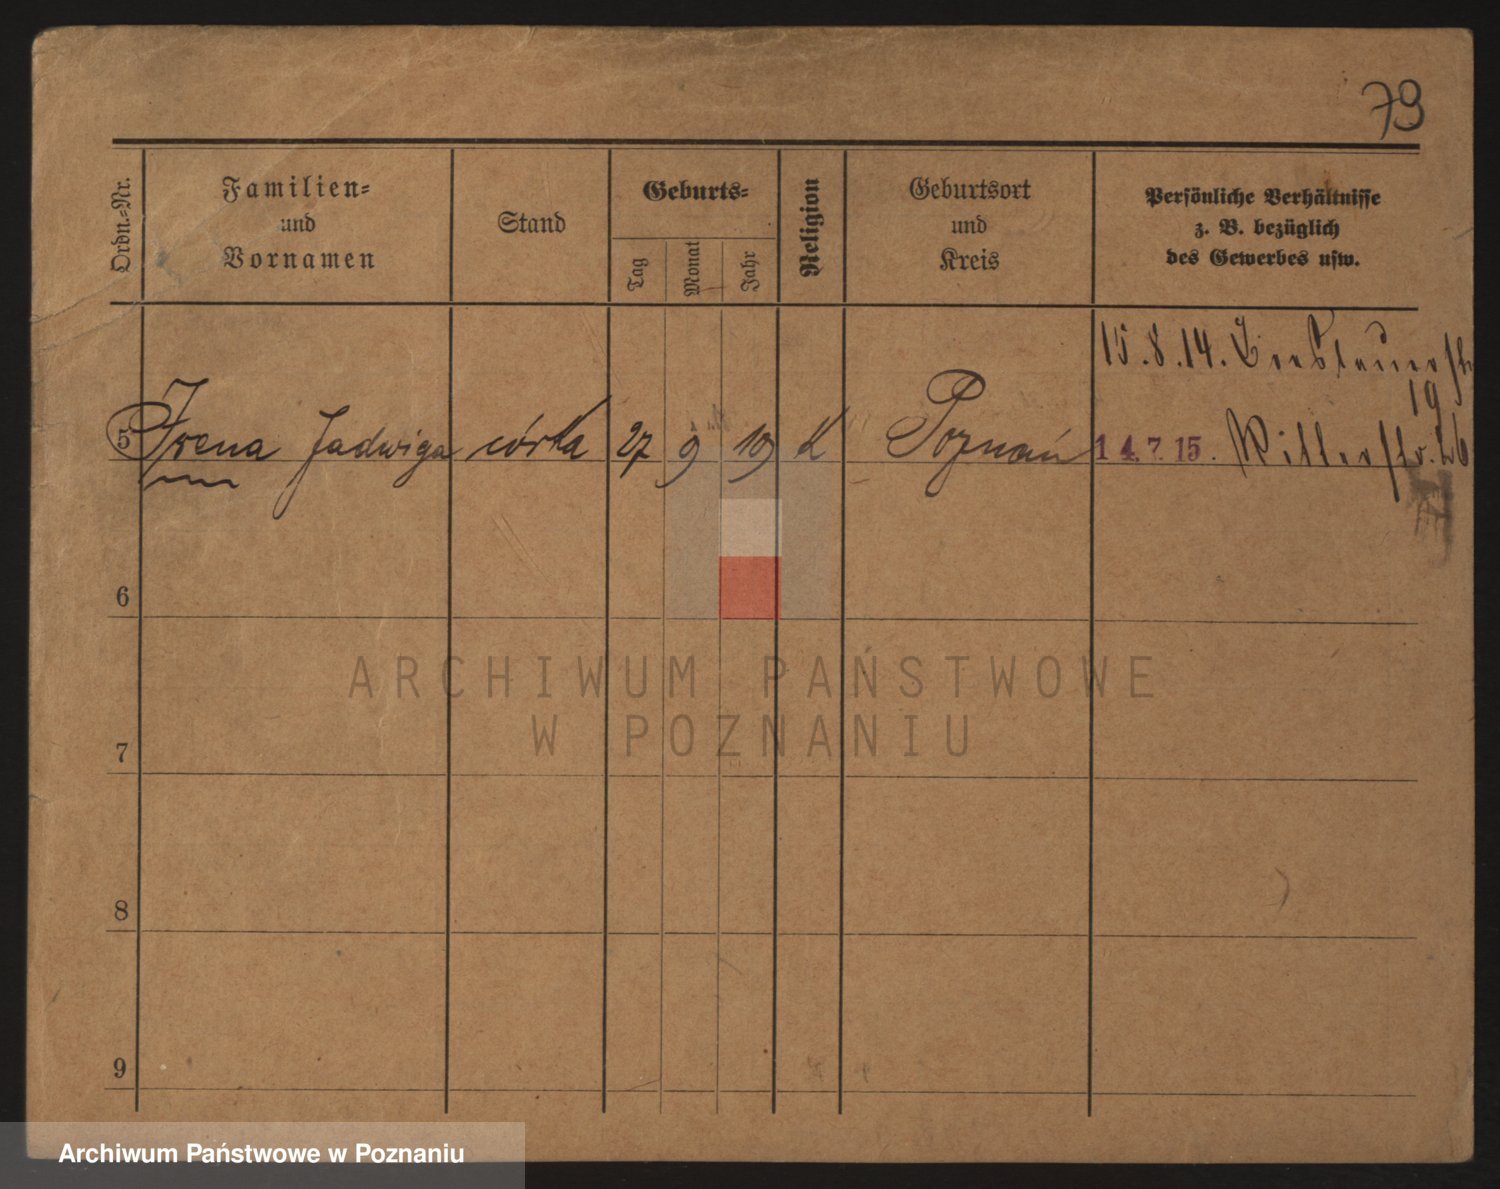 79
Ordn.-Nr.
Familien-
und
Vornamen
Stand
Geburts-
Tag
Monat
Jahr
Religion
Geburtsort
und
Kreis
Persönliche Verhältnisse
z. B. bezüglich
des Gewerbes usw.
15.8.14.
19
5 Irena Jadwiga córka 27 9 19 K Poznań 14.7.15. Ritterstr. 26
6
7
8
9
ARCHIWUM PAŃSTWOWE
W POZNANIU
Archiwum Państwowe w Poznaniu